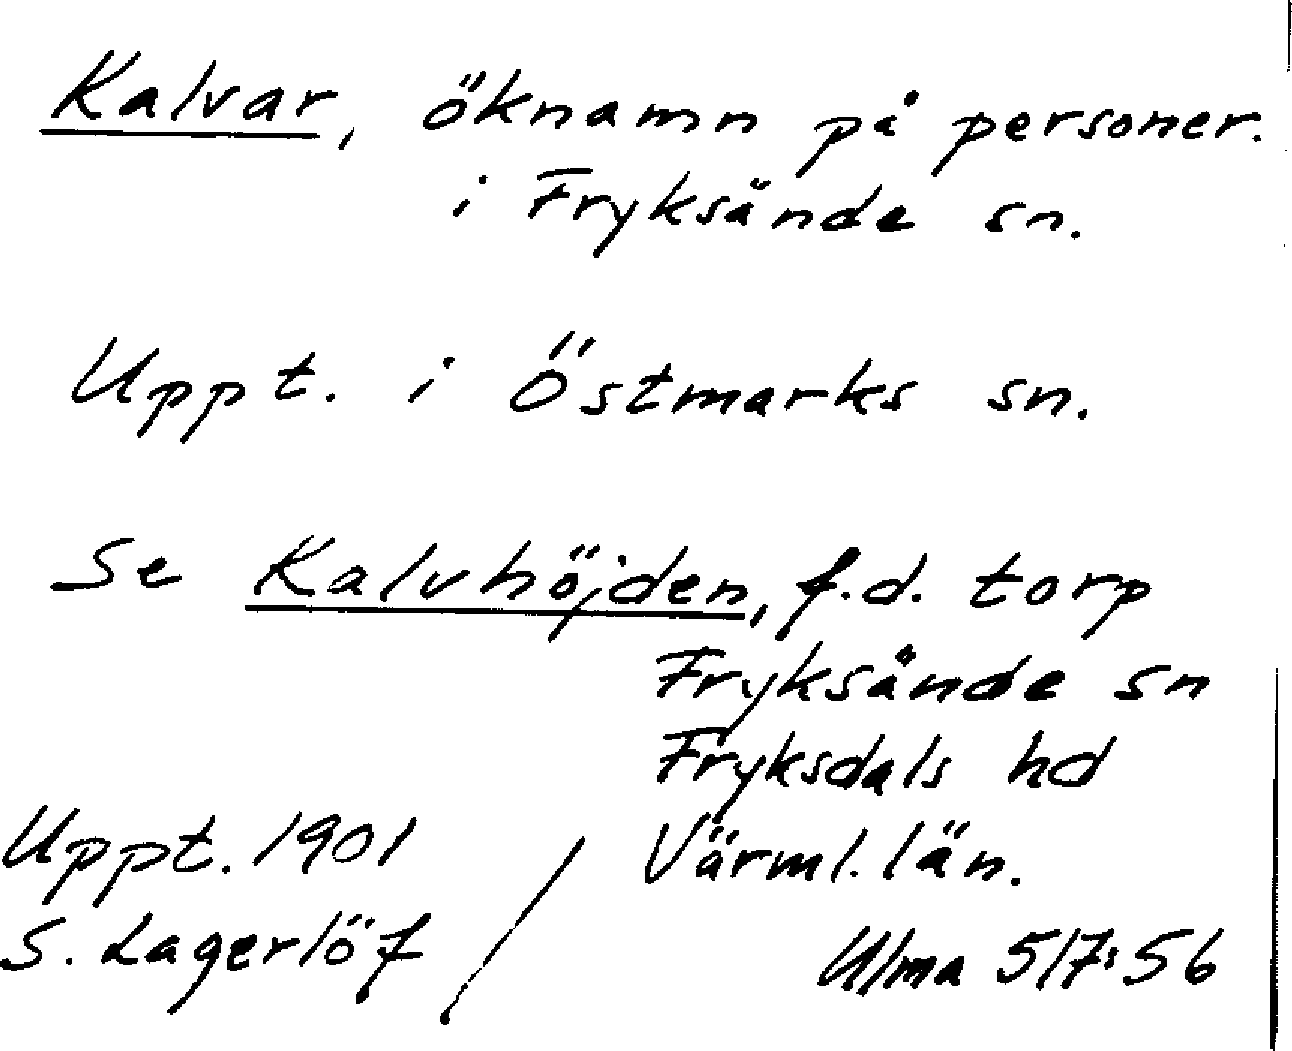 Kalvar, öknamn på personer.
i Fryksände sn.
Uppt. i Östmarks sn.
Se Kalvhöjden, f.d. torp
Fryksände sn
Fryksdals hd
Värml. län.
Uppt. 1901
S. Lagerlöf /
Ulma 517:56